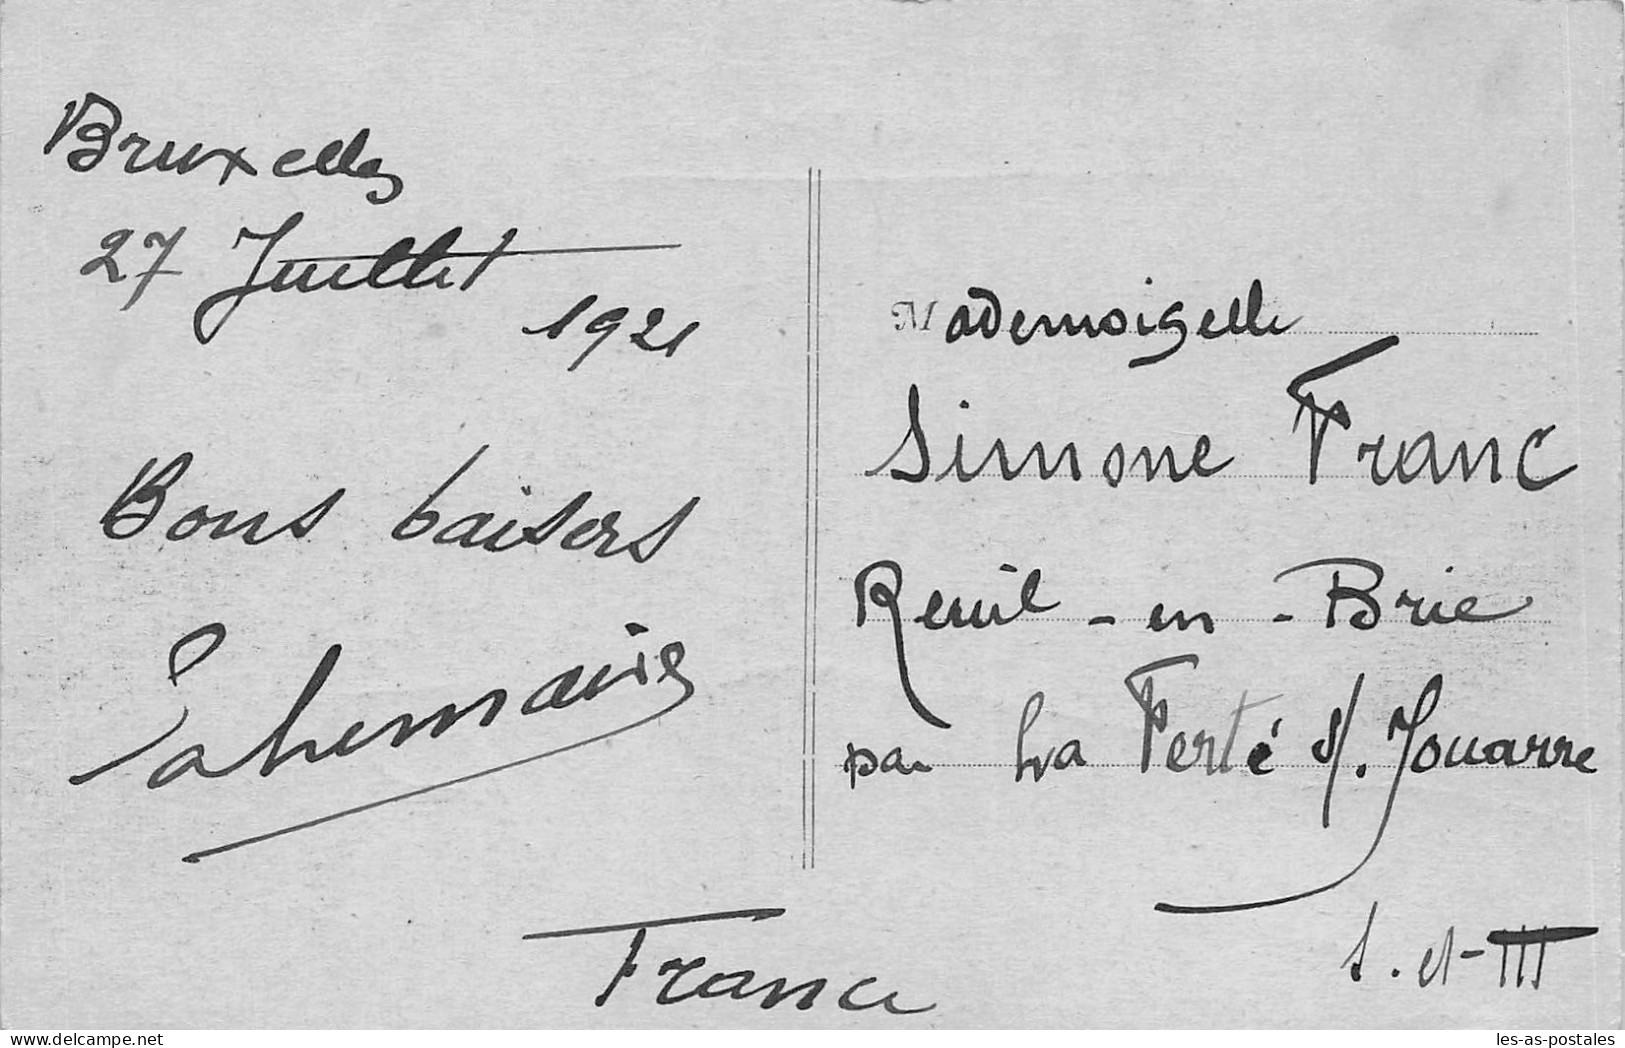 Bruxelles
27 Juillet
1921
Bons baisers
Mademoiselle
Simone Franc
Reuil-en-Brie
par La Ferté s/. Jouarre
S. et-M
France
delcampe.net
les-as-postales